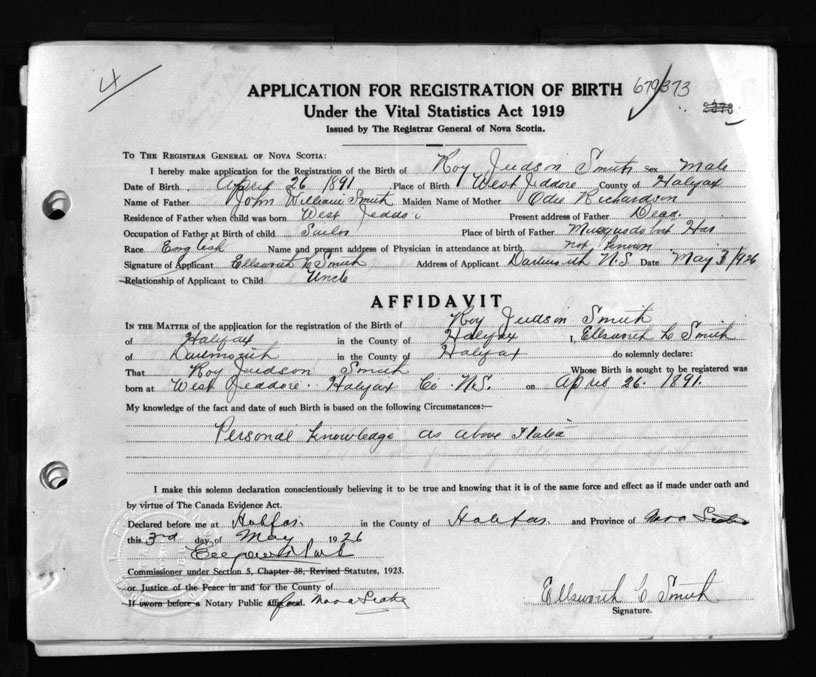 4
APPLICATION FOR REGISTRATION OF BIRTH 679/373
Under the Vital Statistics Act 1919
Issued by The Registrar General of Nova Scotia.
TO THE REGISTRAR GENERAL OF NOVA SCOTIA:
I hereby make application for the Registration of the Birth of Roy Judson Smith Sex Male
Date of Birth April 26 1891 Place of Birth West Jeddore County of Halifax
Name of Father John William Smith Maiden Name of Mother Odie Richardson
Residence of Father when child was born West Jeddore Present address of Father Dead
Occupation of Father at Birth of child Sailor Place of birth of Father
Race English Name and present address of Physician in attendance at birth not known
Signature of Applicant Ellsworth C Smith Address of Applicant Dartmouth N.S Date May 3/1926
Relationship of Applicant to Child Uncle
AFFIDAVIT
IN THE MATTER of the application for the registration of the Birth of Roy Judson Smith
of Halifax in the County of Halifax I, Ellsworth C Smith
of Dartmouth in the County of Halifax do solemnly declare:
That Roy Judson Smith Whose Birth is sought to be registered was
born at West Jeddore. Halifax Co N.S. on April 26. 1891.
My knowledge of the fact and date of such Birth is based on the following Circumstances:—
Personal knowledge as above stated
I make this solemn declaration conscientiously believing it to be true and knowing that it is of the same force and effect as if made under oath and
by virtue of The Canada Evidence Act.
Declared before me at Halifax. in the County of Halifax. and Province of Nova Scotia
this 3rd day of May 1926
Commissioner under Section 5, Chapter 38, Revised Statutes, 1923.
or Justice of the Peace in and for the County of
If sworn before a Notary Public for Nova Scotia
Ellsworth C Smith
Signature.